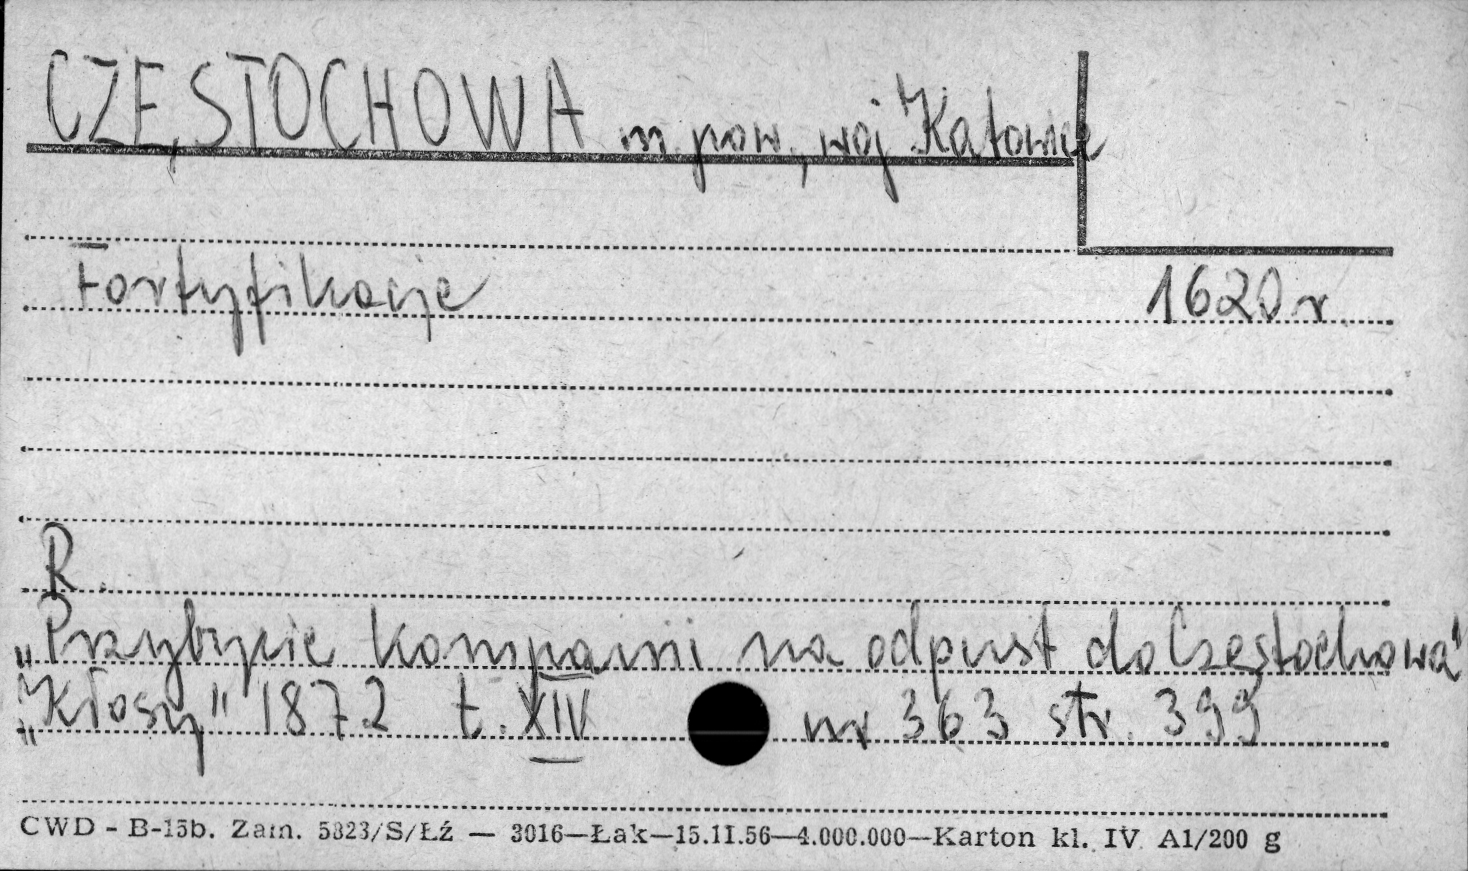 CZĘSTOCHOWA m. pow., woj Katowice
Fortyfikacje 1620 r.
R.
„Przybycie kompanii na odpust do Częstochowa"
„Kłosy" 1872 t. XIV nr 363 str. 399
CWD - B-15b. Zam. 5823/S/Łź — 3016—Łak—15.II.56—4.000.000—Karton kl. IV A1/200 g